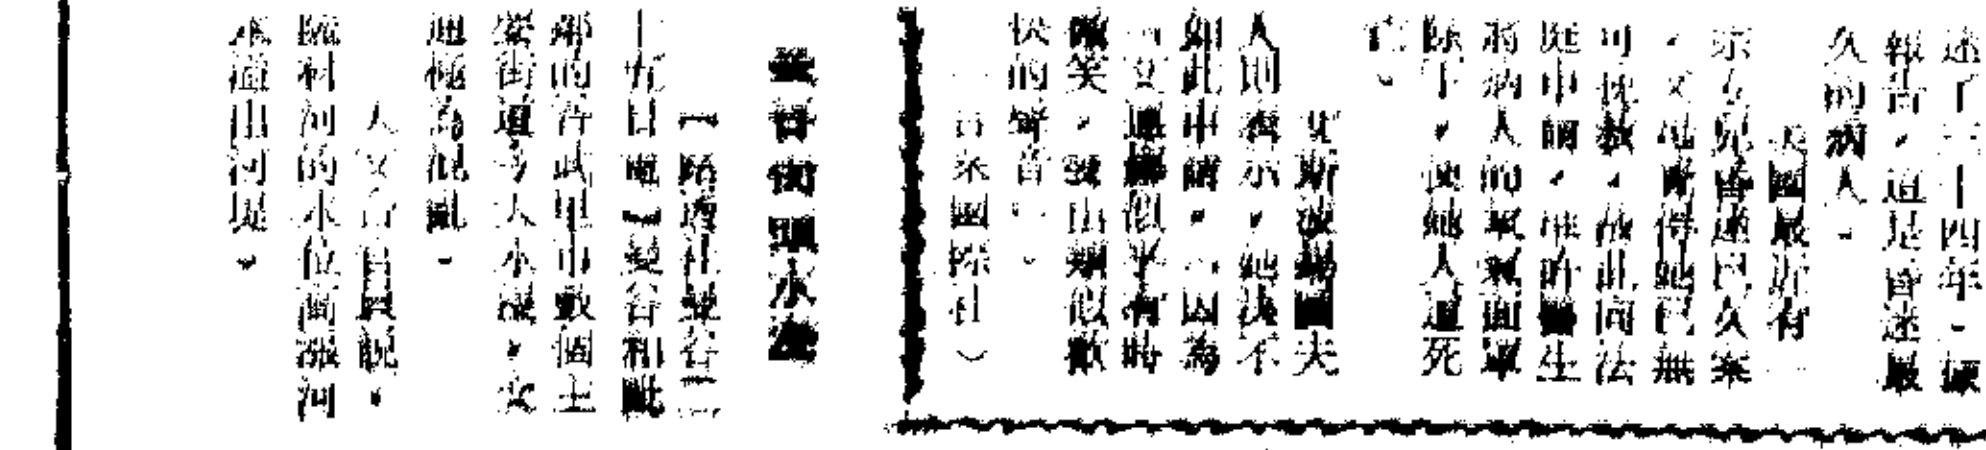 迷了二十四年。據
報告，這是昏迷最
久的病人。
美國最近有一
宗女兒昏迷已久案
，父母覺得她已無
可挽救，故此向法
庭申請，准許醫生
將病人的氧氣面罩
除下，使她人道死
亡。
艾斯波場圖夫
人則表示，她決不
如此申請。「因為
「艾蓮娜似乎有時
微笑，發出類似歡
快的聲音」。
（合眾國際社）
曼谷街頭水浸
【路透社曼谷二
十五日電】曼谷和毗
鄰的吞武里市數個主
要街道今天水浸，交
通極為混亂。
人文台官員說，
湄南河的水位高漲河
水溢出河堤。